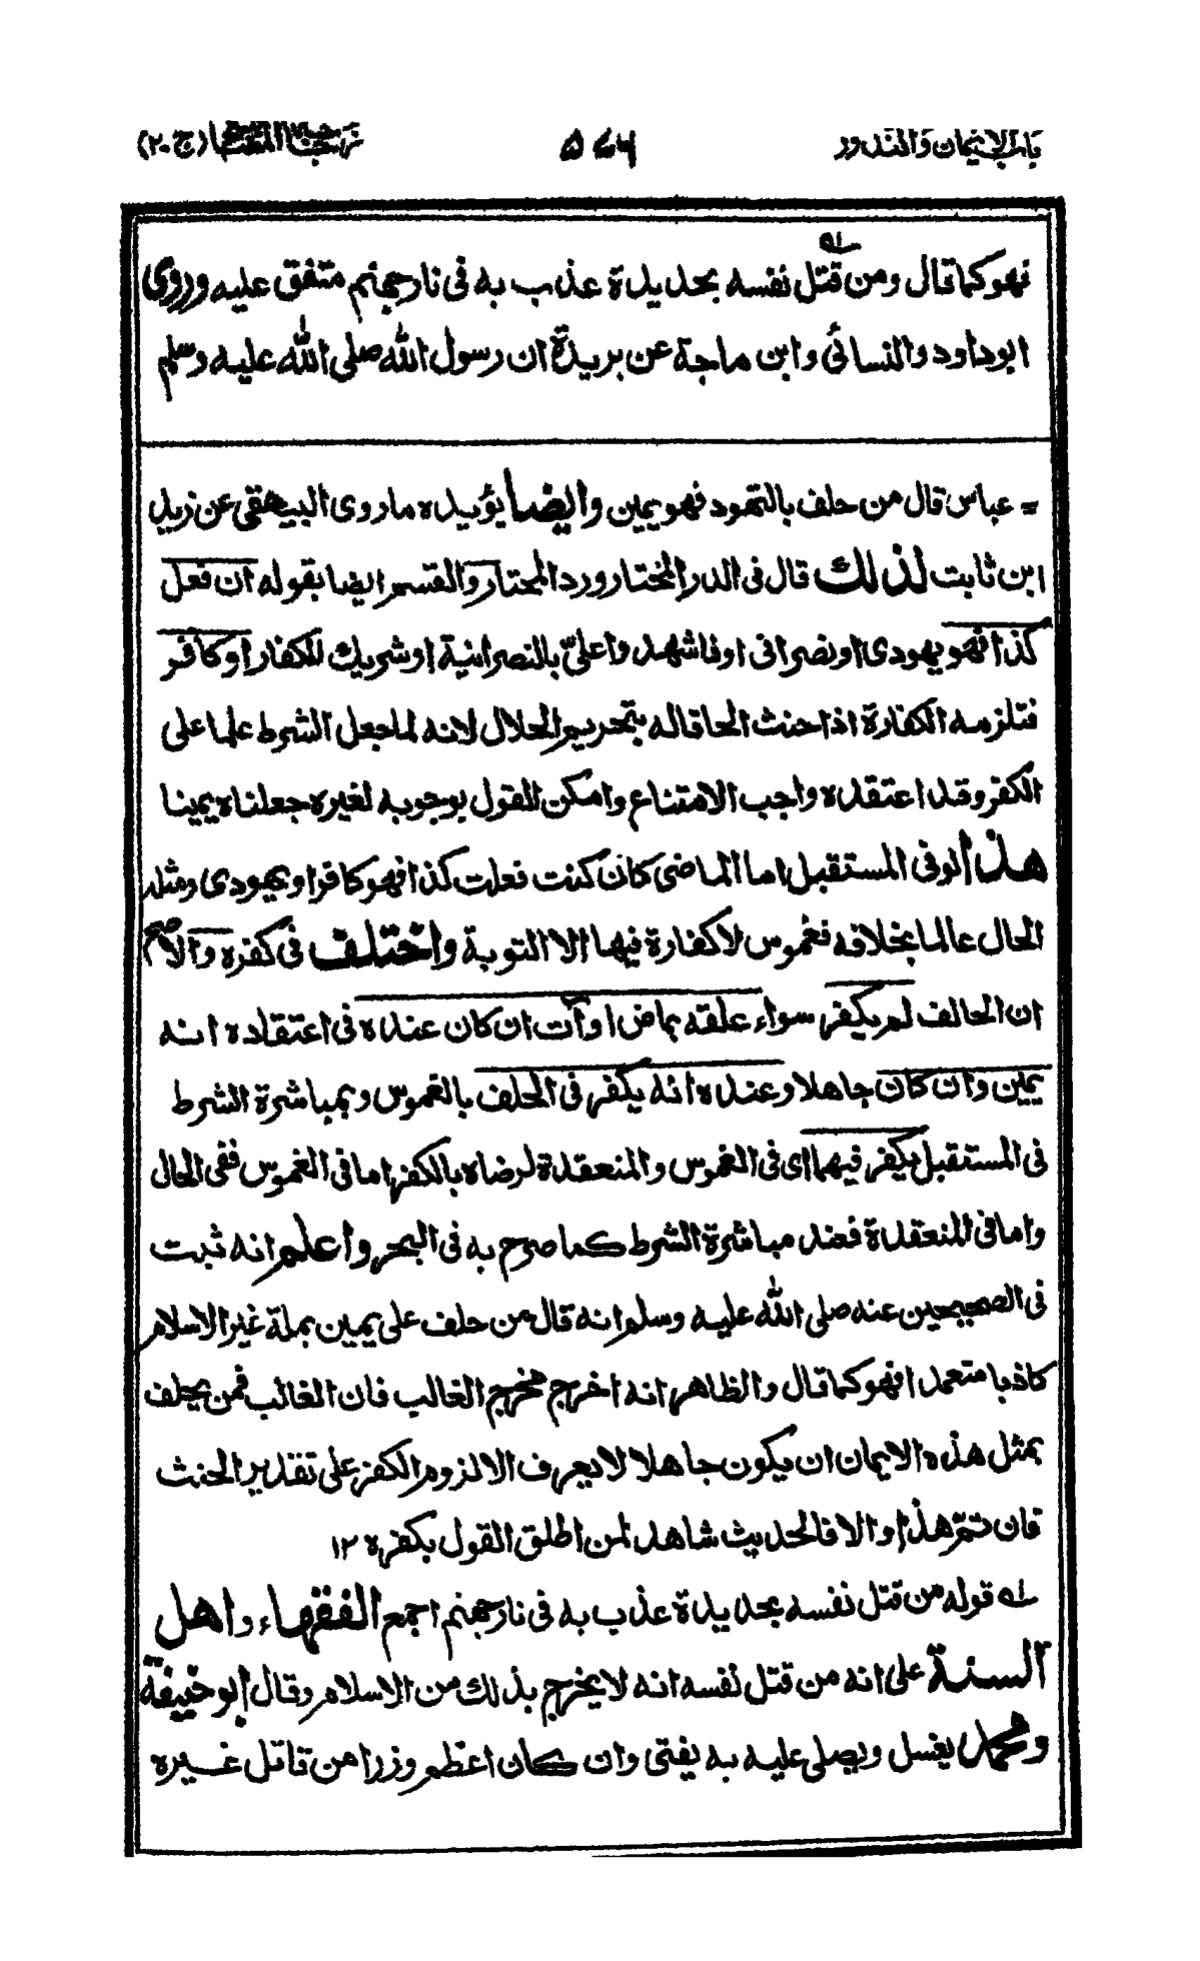 باب الايمان والنذور ٥٧٦ زجاجة المصابيح (ج-٢)
فهو كما قال ومن قتل نفسه بحديدة عذب به فى نار جهنم متفق عليه وروى
ابوداود والنسائى وابن ماجة عن بريدة ان رسول الله صلى الله عليه وسلم
= عباس قال من حلف بالتهود فهو يمين وايضا يؤيده ما روى البيهقى عن زيد
ابن ثابت لذلك قال فى الدر المختار ورد المحتار والقسم ايضا بقوله ان فعل
كذا فهو يهودى او نصرانى او فاشهد واعلىّ بالنصرانية او شريك للكفار او كافر
فتلزمه الكفارة اذا حنث الحاقا له بتحريم الحلال لانه لما جعل الشرط علما على
الكفر وقد اعتقده واجب الامتناع وامكن القول بوجوبه لغيره جعلناه يمينا
هذا لو فى المستقبل اما الماضى كان كنت فعلت كذا فهو كافر او يهودى ومثله
الحال عالما بخلافه فغموس لا كفارة فيها الا التوبة واختلف فى كفره والاصح
ان الحالف لم يكفر سواء علقه بماض او آت ان كان عنده فى اعتقاده انه
يمين وان كان جاهلا وعنده انه يكفر فى الحلف بالغموس وبمباشرة الشرط
فى المستقبل يكفر فيهما اى فى الغموس والمنعقدة لرضاه بالكفر اما فى الغموس ففى الحال
واما فى المنعقدة فعند مباشرة الشرط كما صرح به فى البحر واعلم انه ثبت
فى الصحيحين عنه صلى الله عليه وسلم انه قال من حلف على يمين بملة غير الاسلام
كاذبا متعمدا فهو كما قال والظاهر انه اخرج مخرج الغالب فان الغالب فمن يحلف
بمثل هذه الايمان ان يكون جاهلا لا يعرف الا لزوم الكفر على تقدير الحنث
فان تمّ هذا والا فالحديث شاهد لمن اطلق القول بكفره ١٢
له قوله من قتل نفسه بحديدة عذب به فى نار جهنم اجمع الفقهاء واهل
السنة على انه من قتل نفسه انه لا يخرج بذلك من الاسلام وقال ابو حنيفة
ومحمد يغسل ويصلى عليه به يفتى وان كان اعظم وزرا من قاتل غيره